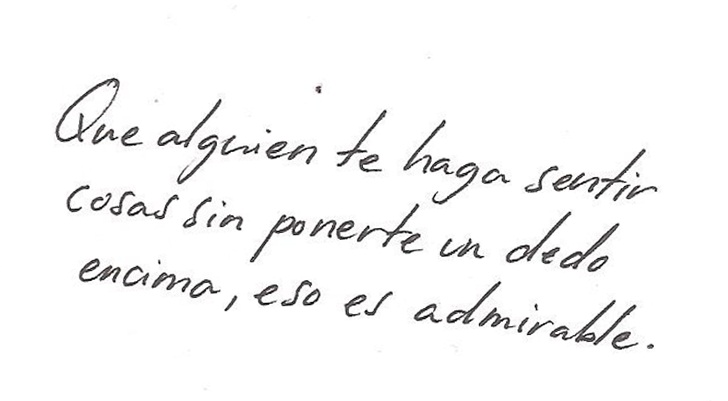 Que alguien te haga sentir
cosas sin ponerte un dedo
encima, eso es admirable.